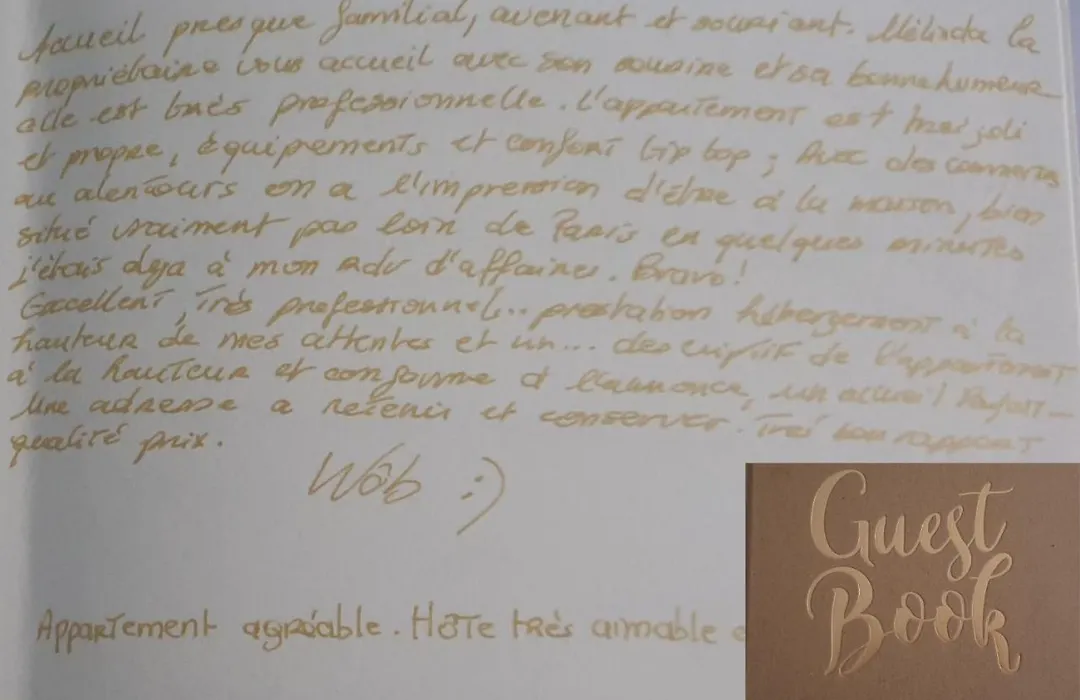 Accueil presque familial, avenant et souriant. Mélinda la
propriétaire vous accueil avec son sourire et sa bonne humeur
elle est très professionnelle. L'appartement est très joli
et propre, équipements et confort tip top ; Avec des commerces
aux alentours on a l'impression d'être à la maison, bien
situé vraiment pas loin de Paris en quelques minutes
j'étais deja à mon rdv d'affaires. Bravo!
Excellent, très professionnel... prestation hébergement à la
hauteur de mes attentes et un... descriptif de l'appartement
à la hauteur et conforme à l'annonce, un accueil
Une adresse a retenir et conserver. Très bon rapport
qualité prix.
:)
Appartement agréable. Hôte très aimable
Guest
Book